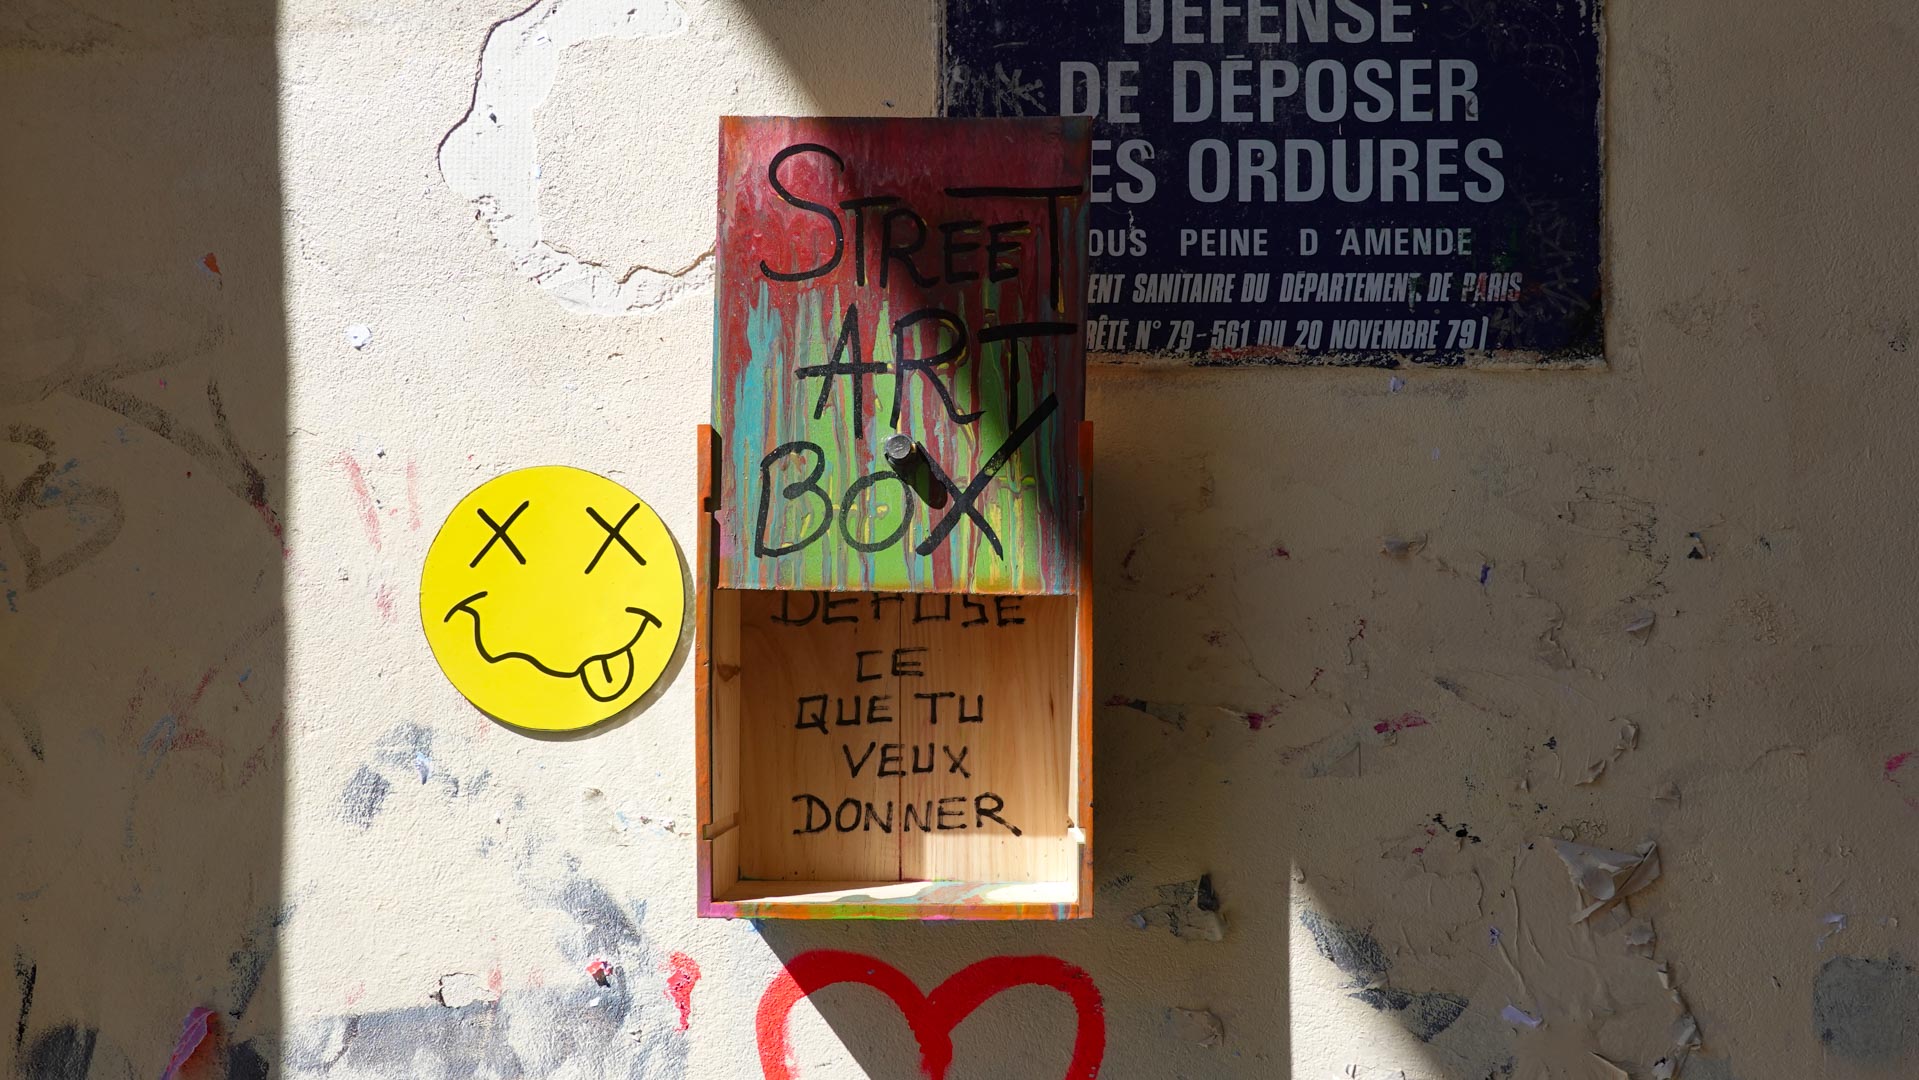 DÉFENSE
DE DÉPOSER
ES ORDURES
OUS PEINE D'AMENDE
ENT SANITAIRE DU DÉPARTEMENT DE PARIS
RÊTÉ N° 79-561 DU 20 NOVEMBRE 79)
STREET
ART
BOX
DEPOSE
CE
QUE TU
VEUX
DONNER